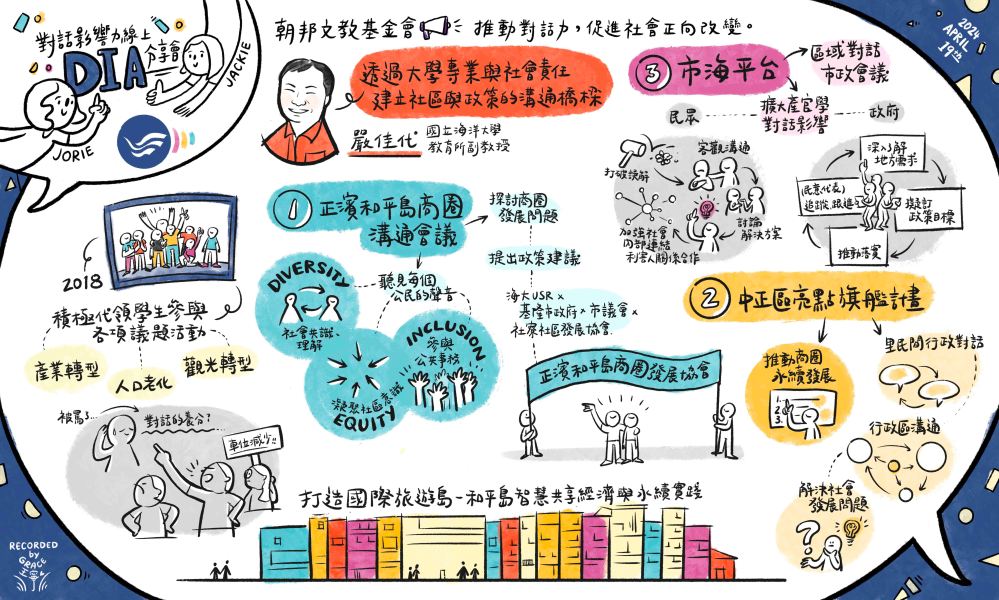 對話影響力線上
DIA
分享會
JACKIE
JORIE
朝邦文教基金會 推動對話力，促進社會正向改變。
2024
APRIL
19th
透過大學專業與社會責任
建立社區與政策的溝通橋樑
嚴佳代
國立海洋大學
教育所副教授
2018
積極代領學生參與
各項議題活動
產業轉型
人口老化
觀光轉型
被罵了...
對話的養分?
車位減少!!
1 正濱和平島商圈
溝通會議
DIVERSITY
社會共識、
理解
聽見每個
公民的聲音
INCLUSION
參與
公共事務
凝聚社區意識
EQUITY
探討商圈
發展問題
提出政策建議
海大USR x
基隆市政府 x 市議會 x
社寮社區發展協會.
正濱和平島商圈發展協會
2 中正區亮點旗艦計畫
推動商圈
永續發展
1.
2.
3.
里民間行政對話
行政區溝通
解決社會
發展問題
3 市海平台
區域對話
市政會議
擴大產官學
對話影響
民眾
政府
打破誤解
客觀溝通
討論
解決方案
加強社會
內部連結
利害人關係合作
深入了解
地方需求
擬訂
政策目標
推動落實
(民意代表)
追蹤、跟進
打造國際旅遊島-和平島智慧共享經濟與永續實踐
RECORDED
by
GRACE